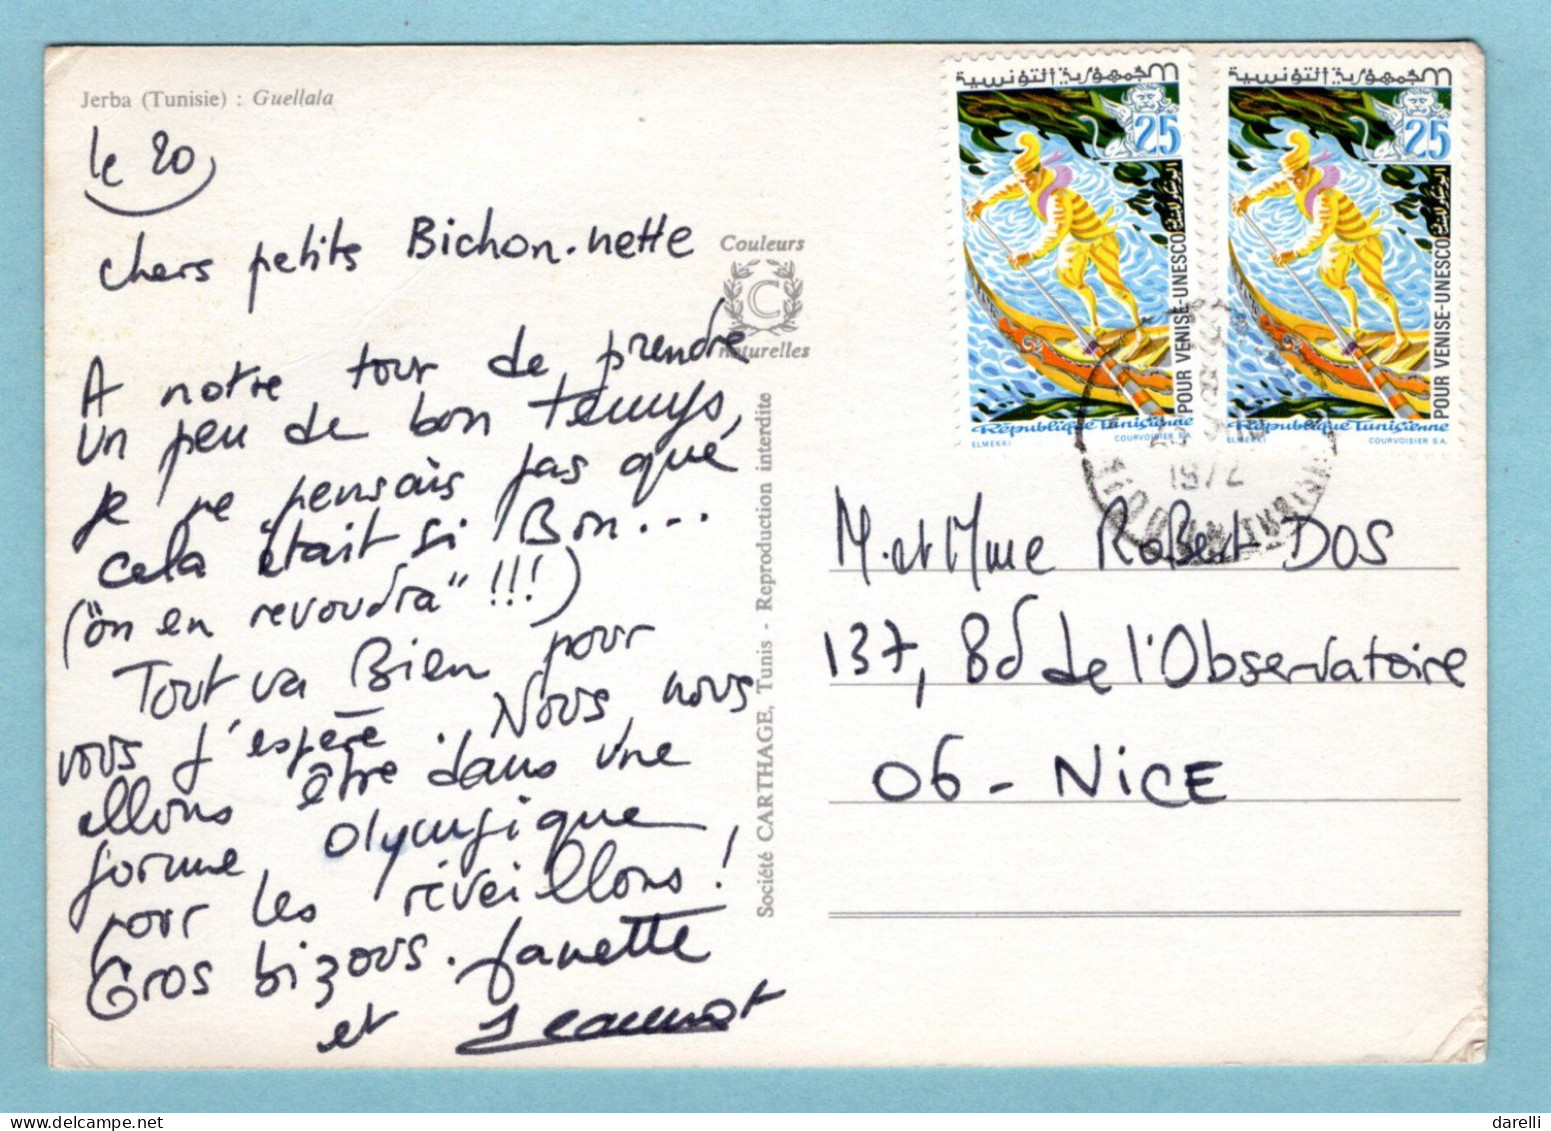 Jerba (Tunisie) : Guellala
le 20
chers petits Bichon-nette
A notre tour de prendre
un peu de bon temps,
je ne pensais pas que
cela était si Bon...
("on en revoudra" !!!)
Tout va Bien pour
vous j'espère. Nous, nous
allons être dans une
forme olympique
pour les réveillons !
Gros bizous. Janette
et Jeannot
Couleurs
C
naturelles
Société CARTHAGE, Tunis - Reproduction interdite
الجمهورية التونسية
25
POUR VENISE-UNESCO
République Tunisienne
ELMEKKI COURVOISIER S.A.
الجمهورية التونسية
25
POUR VENISE-UNESCO
République Tunisienne
ELMEKKI COURVOISIER S.A.
1972
M. et Mme Robert DOS
137, Bd de l'Observatoire
06 - NICE
darelli